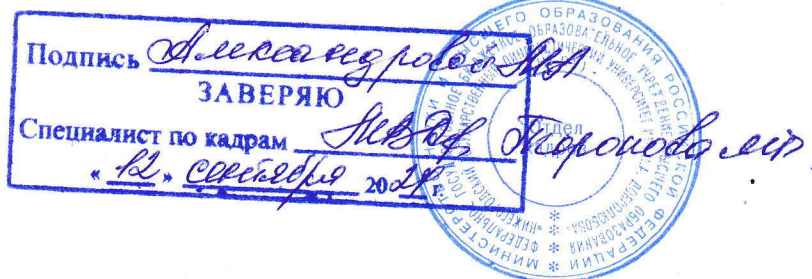 Подпись Александровой М.А.
ЗАВЕРЯЮ
Специалист по кадрам Торопова
« 12 » сентября 2024 г.
МИНИСТЕРСТВО ВЫСШЕГО ОБРАЗОВАНИЯ РОССИЙСКОЙ ФЕДЕРАЦИИ
ФЕДЕРАЛЬНОЕ ГОСУДАРСТВЕННОЕ БЮДЖЕТНОЕ ОБРАЗОВАТЕЛЬНОЕ УЧРЕЖДЕНИЕ ВЫСШЕГО ОБРАЗОВАНИЯ
УНИВЕРСИТЕТ ДОБРОЛЮБОВА
Отдел